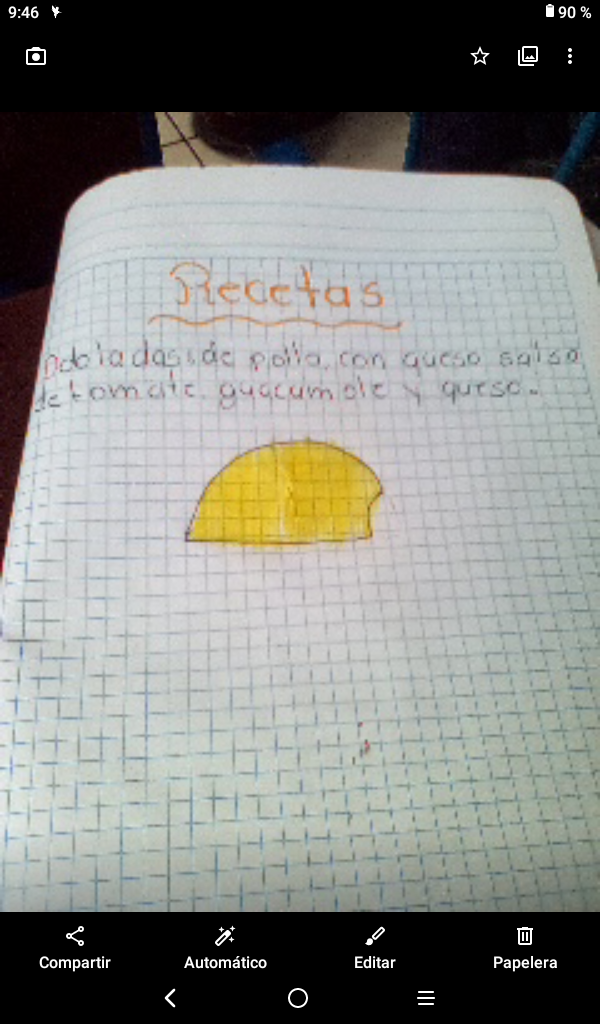 9:46
90 %
Recetas
Dobladas de pollo, con queso salsa
de tomate. guacumole y queso.
Compartir
Automático
Editar
Papelera